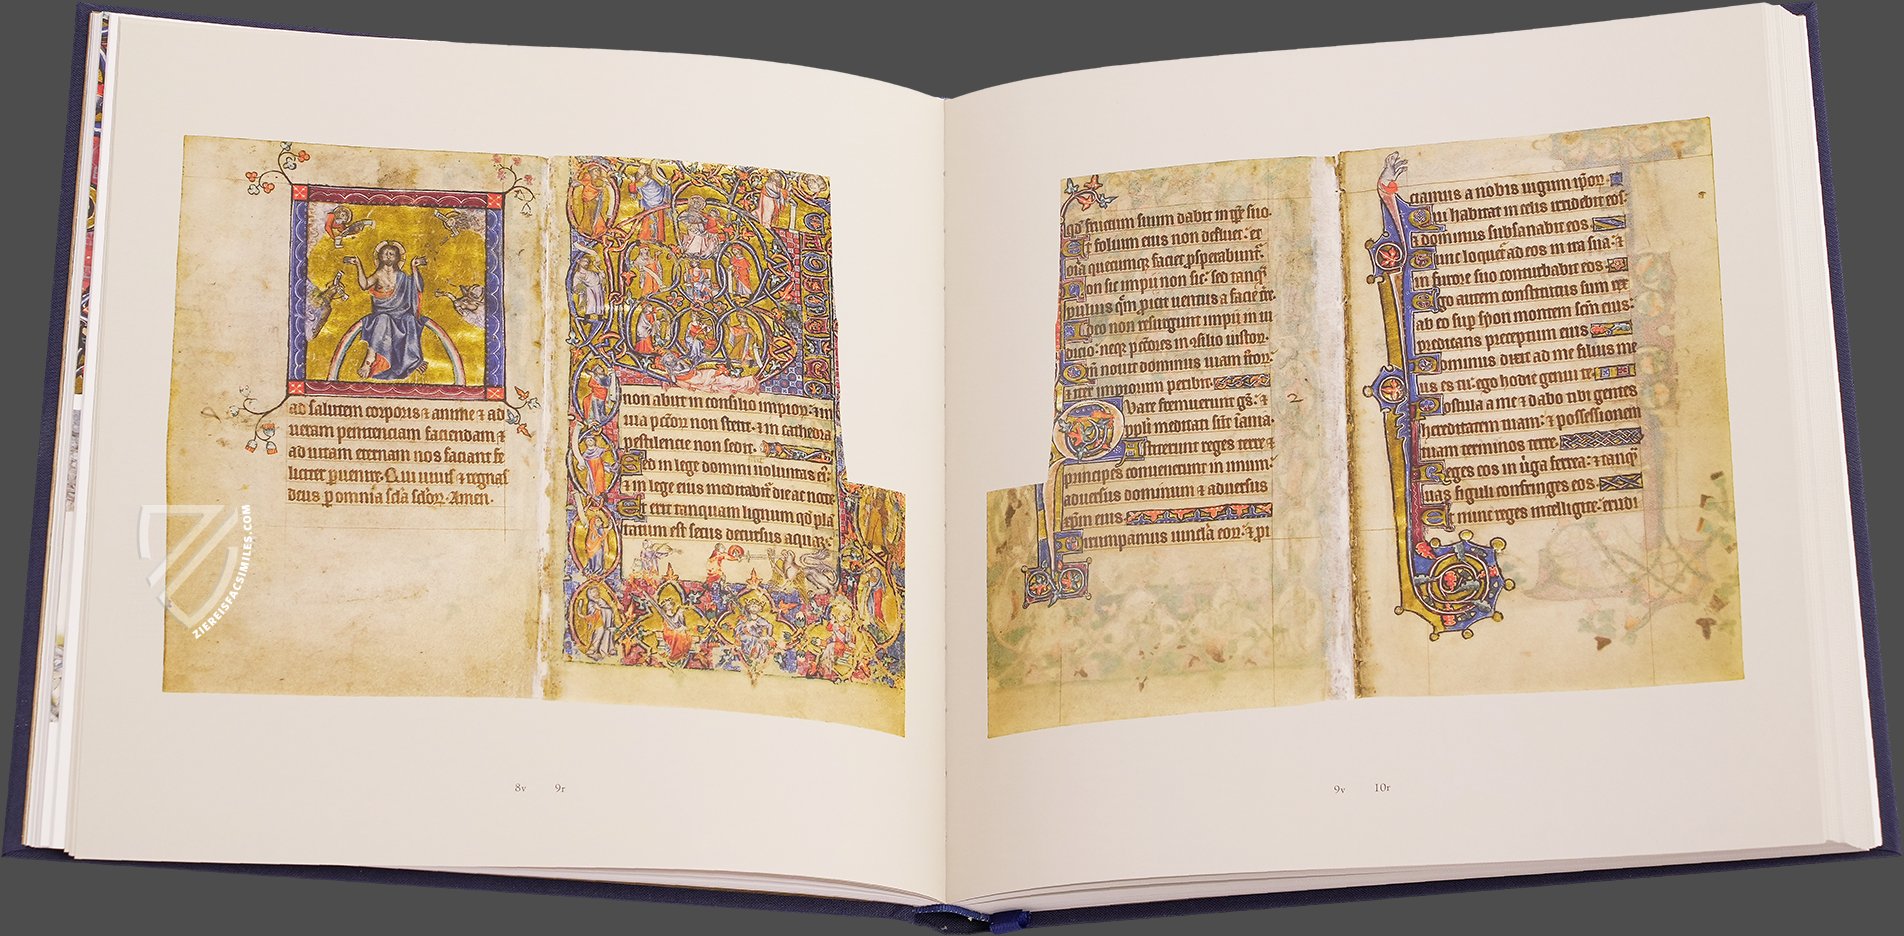 ad salutem corporis & anime & ad
ueram penitenciam faciendam &
ad uitam eternam nos faciant fe
liciter ꝑuenire. Qui uiuis & regnas
deus ꝑ omnia scła scłoꝝ. Amen.
non abiit in consilio impioꝝ: & in
uia pctōꝝ non stetit. & in cathedra
pestilencie non sedit.
Sed in lege domini uoluntas ei:
& in lege eius meditabit̉ die ac nocte
Et erit tanquam lignum qđ pla
tatum est secus decursus aquaꝝ:
ZIEREISFACSIMILES.COM
8v 9r
qđ fructum suum dabit in tp̄r suo.
Et folium eius non defluet: et
oīa quecumqꝫ faciet ꝓsperabunt̉.
Non sic impii non sic: sed tanq̄
puluis quē ꝓicit uentus a facie tr̄e.
Ideo non resurgunt impii in iu
dicio: neqꝫ pctōres in cōsilio iustoꝝ.
Qm̄ nouit dominus uiam iustoꝝ:
& iter impiorum peribit.
Quare fremuerunt gēs: &
ppl̄i meditati sūt inania.
Astiterunt reges terre &
principes conuenerunt in unum:
aduersus dominum & aduersus
xp̄m eius
Dirumpamus uincla eoꝝ: & ꝓi
2
ciamus a nobis iugum ip̄oꝝ.
Qui habitat in celis irridebit eos:
& dominus subsanabit eos
Tunc loquet̉ ad eos in ira sua: &
in furore suo conturbabit eos
Ego autem constitutus sum rex
ab eo suꝑ syon montem sc̄m eius:
predicans preceptum eius
Dominus dixit ad me filius me
us es tu: ego hodie genui te
Postula a me & dabo tibi gentes
hereditatem tuam: & possessionem
tuam terminos terre.
Reges eos in uir̉ga ferrea: & tanq̄
uas figuli confringes eos
Et nunc reges intelligite: erudi
9v 10r